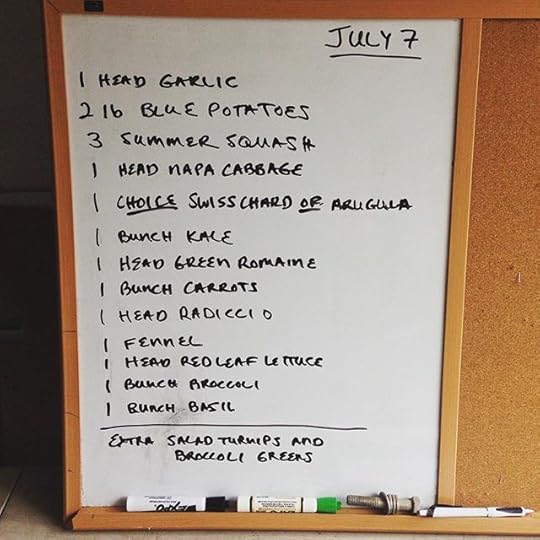 JULY 7
1 HEAD GARLIC
2 lb BLUE POTATOES
3 SUMMER SQUASH
1 HEAD NAPA CABBAGE
1 CHOICE SWISS CHARD OR ARUGULA
1 BUNCH KALE
1 HEAD GREEN ROMAINE
1 BUNCH CARROTS
1 HEAD RADICCIO
1 FENNEL
1 HEAD RED LEAF LETTUCE
1 BUNCH BROCCOLI
1 BUNCH BASIL
EXTRA SALAD TURNIPS AND
BROCCOLI GREENS
EXPO